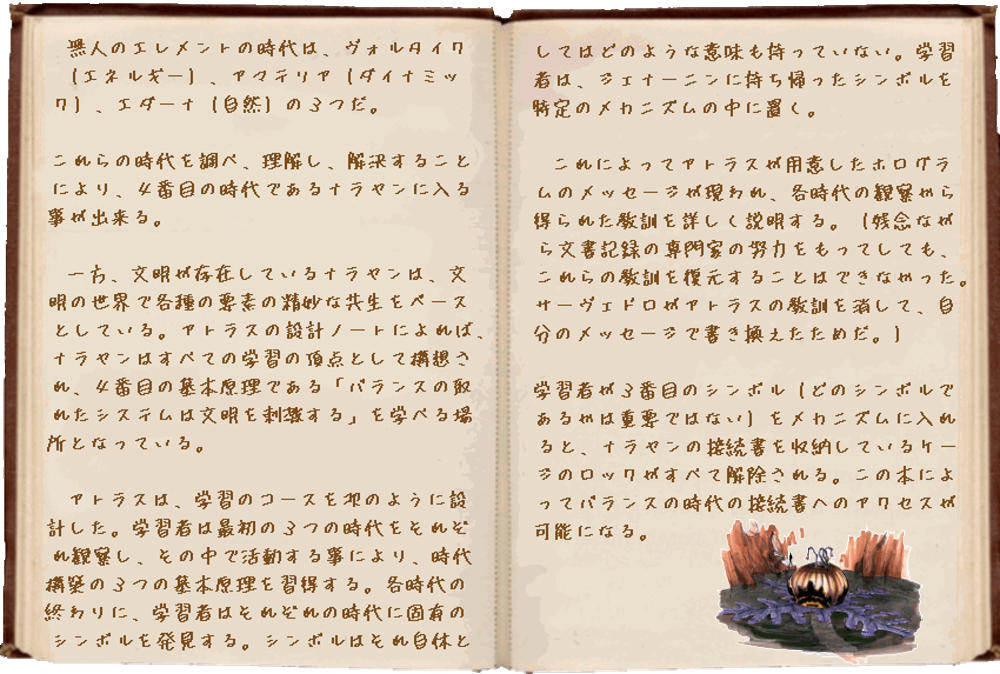 無人のエレメントの時代は、ヴォルタイク
(エネルギー)、アマテリア(ダイナミッ
ク)、エダーナ(自然)の3つだ。
これらの時代を調べ、理解し、解決すること
により、4番目の時代であるナラヤンに入る
事が出来る。
一方、文明が存在しているナラヤンは、文
明の世界で各種の要素の精妙な共生をベース
としている。アトラスの設計ノートによれば、
ナラヤンはすべての学習の頂点として構想さ
れ、4番目の基本原理である「バランスの取
れたシステムは文明を刺激する」を学べる場
所となっている。
アトラスは、学習のコースを次のように設
計した。学習者は最初の3つの時代をそれぞ
れ観察し、その中で活動する事により、時代
構築の3つの基本原理を習得する。各時代の
終わりに、学習者はそれぞれの時代に固有の
シンボルを発見する。シンボルはそれ自体と
してはどのような意味も持っていない。学習
者は、ジェナーニンに持ち帰ったシンボルを
特定のメカニズムの中に置く。
これによってアトラスが用意したホログラ
ムのメッセージが現われ、各時代の観察から
得られた教訓を詳しく説明する。(残念なが
ら文書記録の専門家の努力をもってしても、
これらの教訓を復元することはできなかった。
サーヴェドロがアトラスの教訓を消して、自
分のメッセージで書き換えたためだ。)
学習者が3番目のシンボル(どのシンボルで
あるかは重要ではない)をメカニズムに入れ
ると、ナラヤンの接続書を収納しているケー
ジのロックがすべて解除される。この本によ
ってバランスの時代の接続書へのアクセスが
可能になる。